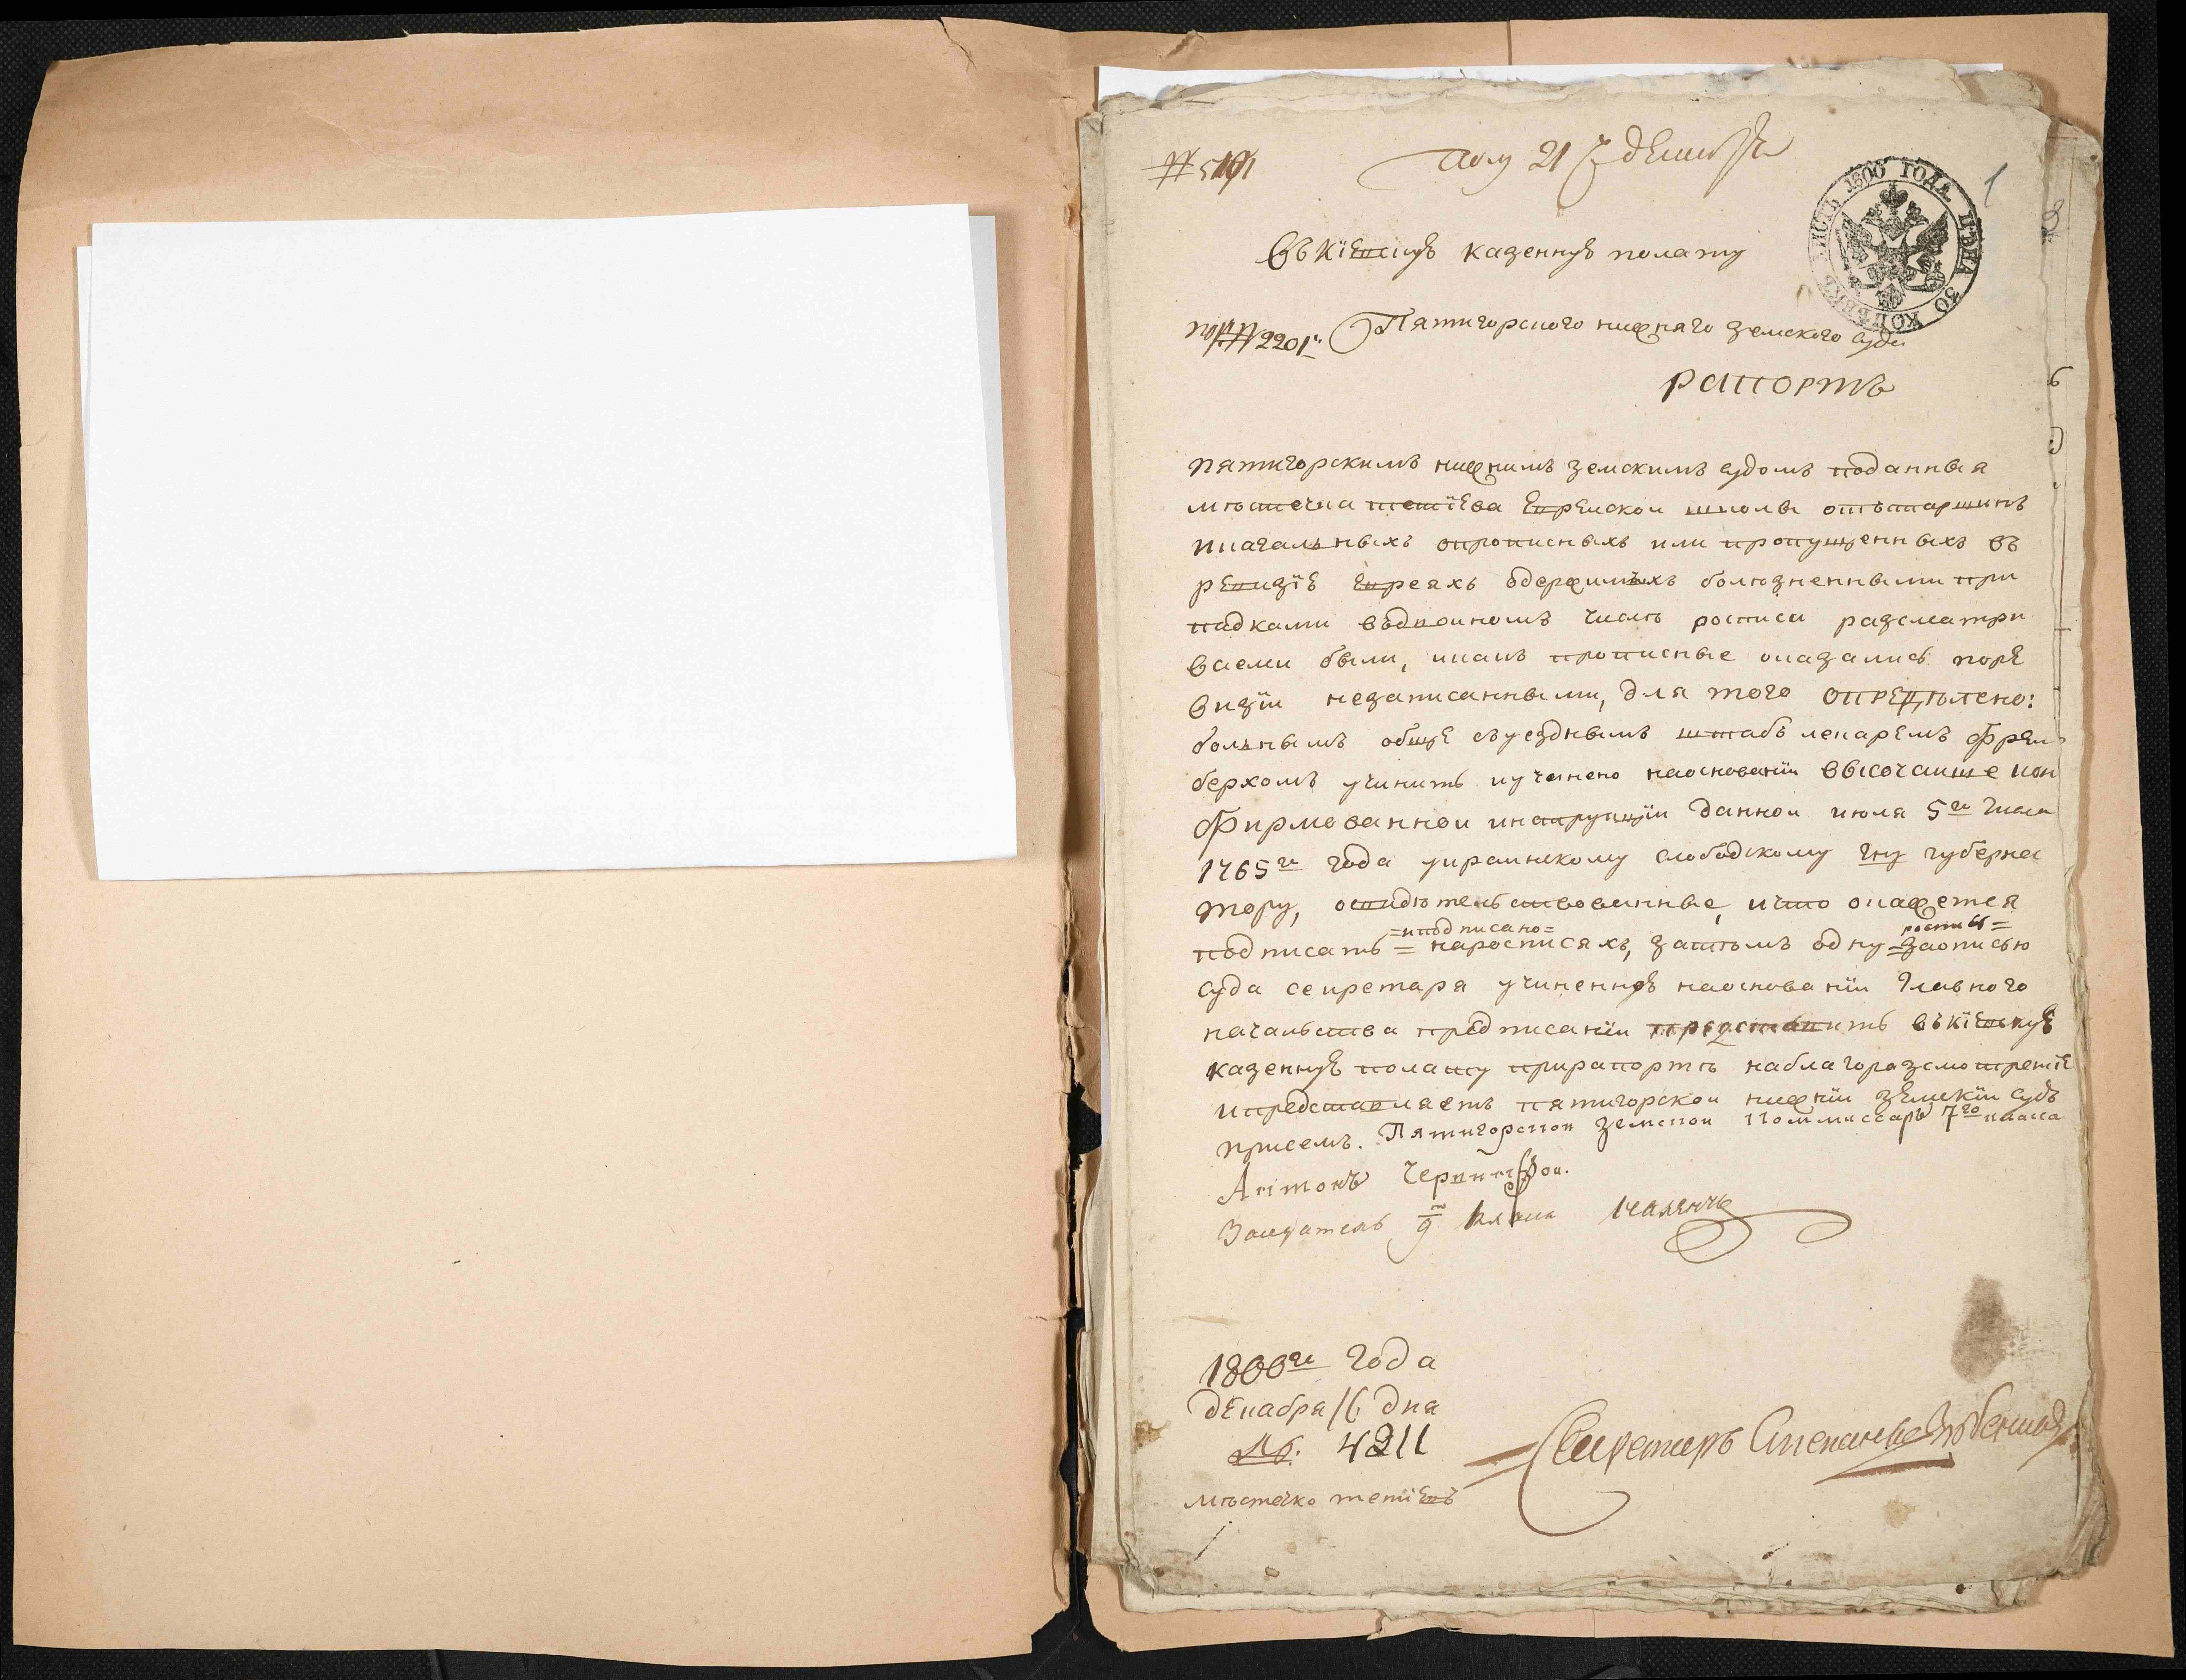 № 5191
Пол 21 декабр
1
ЛИСТЪ 1800 ГОДА ЦѢНА 30 КОПѢЕКЪ
Въ Кіевскую казенную полату
по №2201й Пятигорского нижняго земского суда
рапортъ
пятигорскимъ нижнимъ земскимъ судомъ поданныя
мѣстечка тетіева еврейской школы отъ старшинъ
кагальныхъ о прописныхъ или пропущенныхъ въ
ревизіе евреяхъ одержимыхъ болѣзненными при
падками въ двоиномъ числѣ росписи разсматри
ваеми были, и какъ прописные оказались по ре
визіи незаписанными, для того опредѣлено:
больнымъ обще съ уезднымъ штабъ лекаремъ Фрей
берхомъ учинить и учинено на основаніи высочаише кон
фирмованной инструкціи данной июля 5го числа
1765го года украинскому слободскому гну губерна
тору, освидѣтельствованные, и что окажется
подписать =и подписано= на росписяхъ, затѣмъ одну =роспись= за описью
суда секретаря учиненную на основаніи главного
начальства предписаніи представить въ кіевскую
казенную полату при рапортѣ на благоразсмотреніе
и представляетъ пятигорской нижніи земскіи судъ
при семъ. Пятигорской земской коммиссаръ 7го класса
Антонъ
Заседатель 9 класа
1800го года
декабря 16 дня
№. 4211
мѣстечко тетіевъ
Секретарь Степанъ